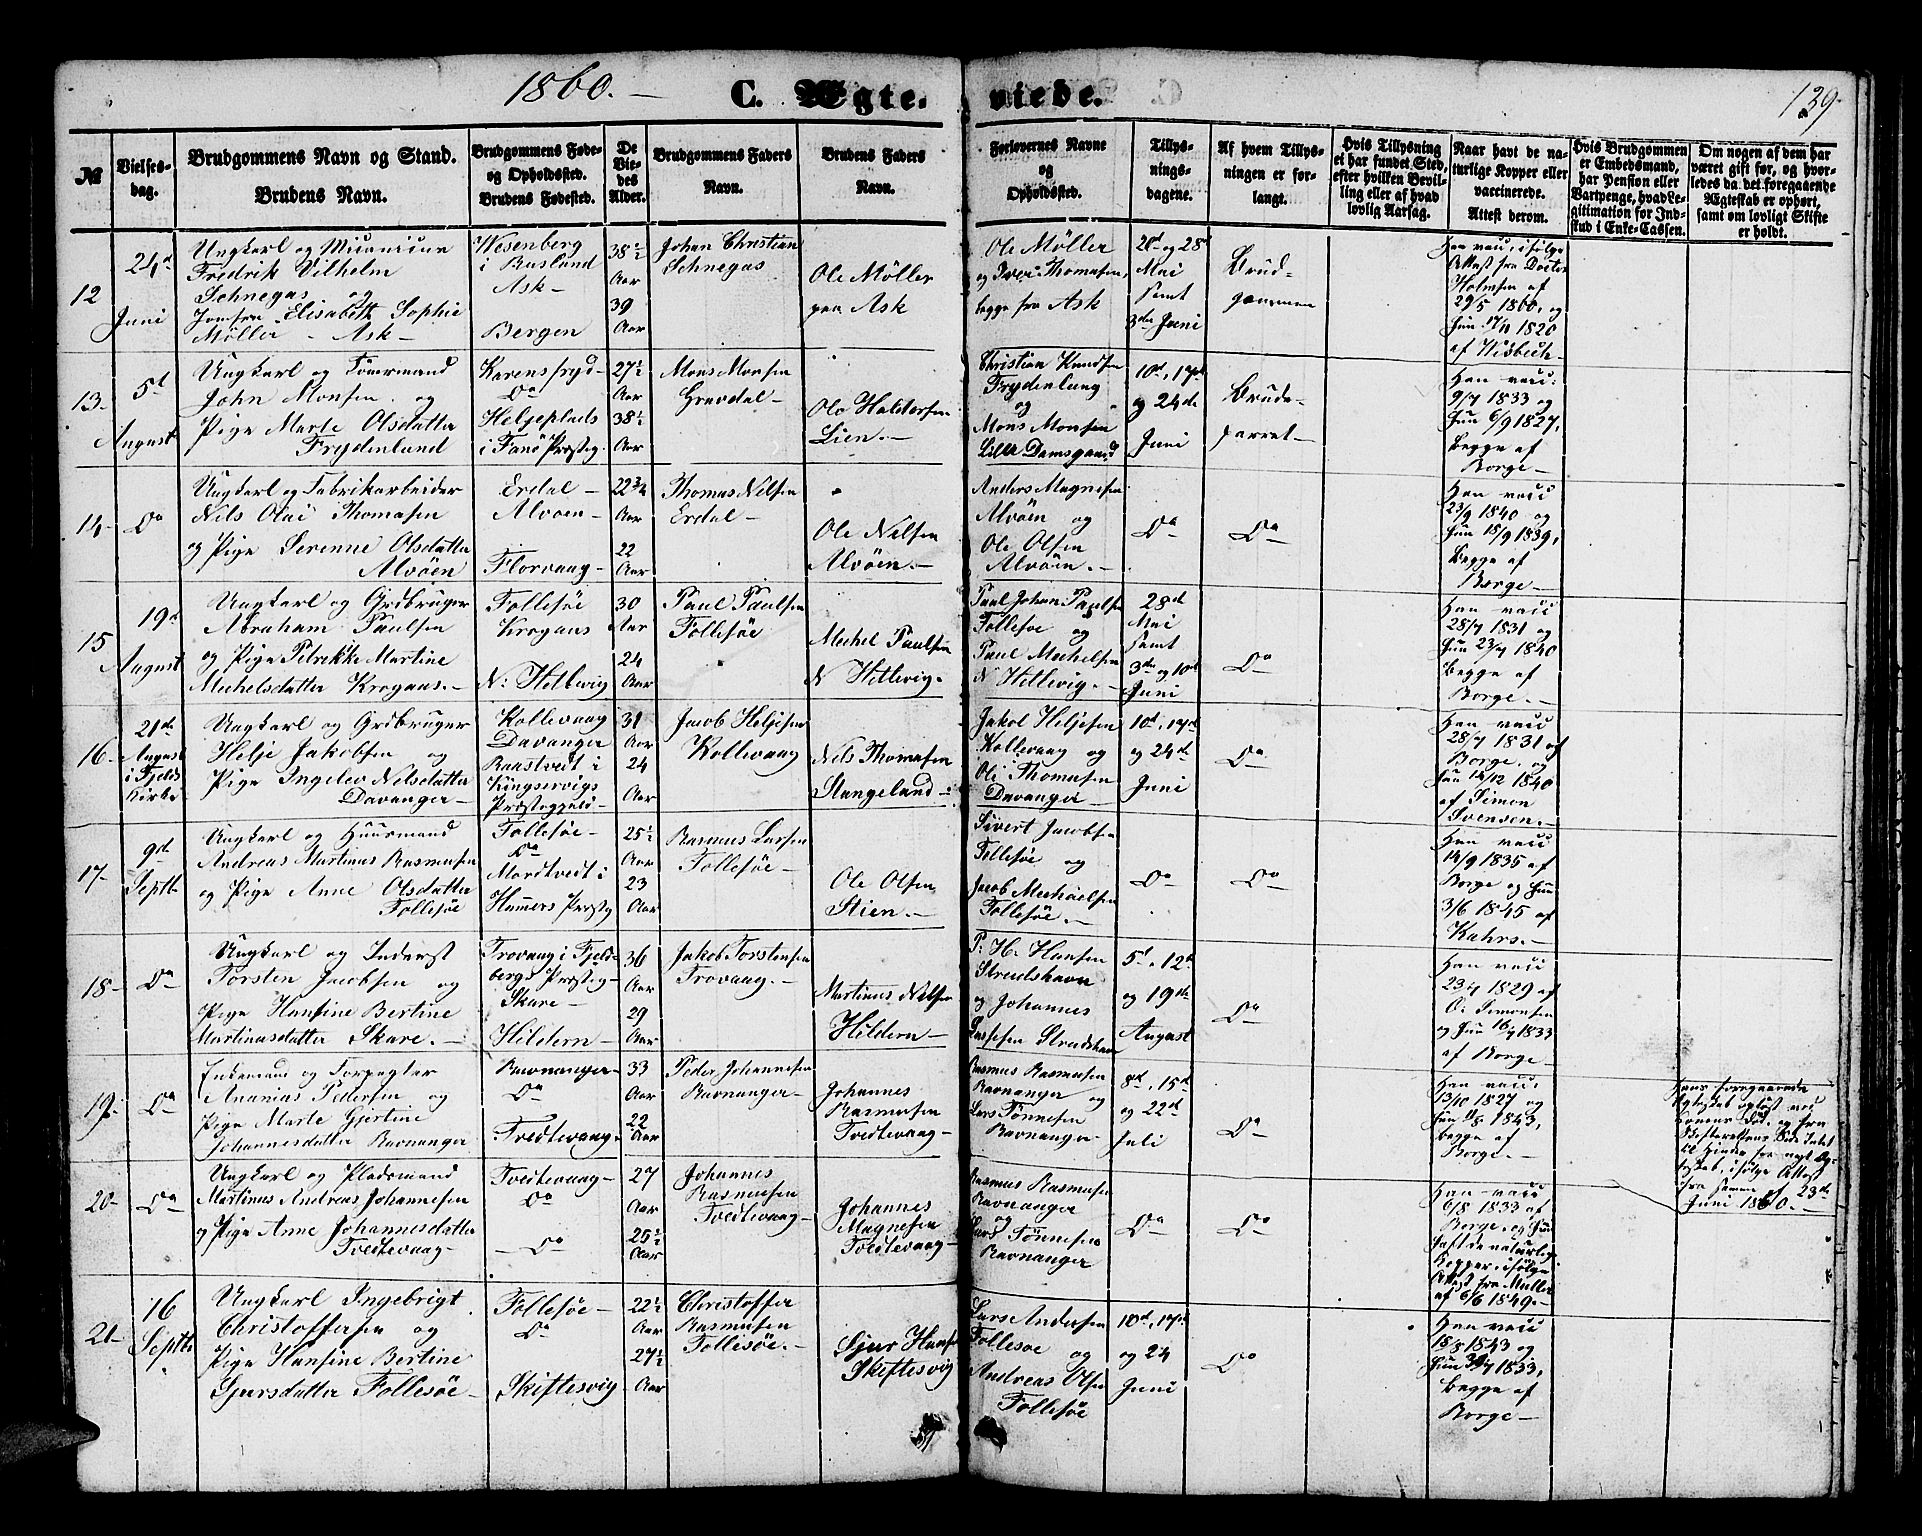 1860. —
C. Ægte.
viede.
139.
№
Vielses-
dag.
Brudgommens Navn og Stand.
Brudens Navn.
Brudgommens Føde-
og Opholdssted.
Brudens Fødested.
De
Vie-
des
Alder.
Brudgommens Faders
Navn.
Brudens Faders
Navn.
Forlovernes Navne
og
Opholdssted.
Tillys-
nings-
dagene.
Af hvem Tillys-
ningen er for-
langt.
Hvis Tillysning
ei har fundet Sted,
efter hvilken Bevil-
ling eller af hvad
lovlig Aarsag.
Naar havt de na-
turlige Kopper eller
vaccinerede.
Attest derom.
Hvis Brudgommen
er Embedsmand,
har Pension eller
Vartpenge, hvad Le-
gitimation for Ind-
skud i Enke-Cassen.
Om nogen af dem har
været gift før, og hvor-
ledes da det foregaaende
Ægteskab er ophørt,
samt om lovligt Skifte
er holdt.
12
24d
Juni
Ungkarl og
Fredrik Vilhelm
Schnegas og
Jomfru Elisabeth Sophie
Møller — Ask —
Wesenberg
i Rusland
Ask —
Bergen
38½
Aar
39
Aar
Johan Christian
Schnegas
Ole Møller
paa Ask
Ole Møller
og Iver Thomasen,
begge fra Ask
28d
Mai
samt
3die Juni
Brud-
gommen
Han vacc. ifølge
Attest fra Doctor
Holmsen af
29/5 1860, og
Hun 17/11 1820
af Wisbech —
13.
5d
August
Ungkarl og Tømmermand
John Monsen og
Pige Marte Olsdatter
Frydenlund
Do
Helgeplads
i Fanø Præsteg.
27½
Aar
38½
Aar
Mons Monsen
Gravdal —
Ole Haldorsen
Lien. —
Christian Knudsen
Frydenlung
og
Mons Monsen
Lille Damsgaard
10d, 17d
og 24de
Juni
Brude-
parret —
Han vacc.
9/7 1833 og
Hun 6/9 1827,
begge af
Borge —
14 —
Do
Ungkarl og Fabrikarbeider
Nils Olai Thomasen
og Pige Serenne Olsdatter
Alvøen
Erdal —
Alvøen —
Florvaag —
22¾
Aar
22
Aar
Thomas Nilsen
Erdal —
Ole Nilsen
Alvøen. —
Anders Magnesen
Alvøen og
Ole Olsen
Alvøen. —
Do
Do
Han vacc
23/9 1840 og
Hun 15/9 1839,
begge af
Borge —
15
19d
August
Ungkarl og Grdbruger
Abraham Paulsen
og Pige Petrekke Martine
Mechelsdatter Krogaas. —
Follesøe
Krogaas
N. Hetlevig
30
Aar
24
Aar
Paul Paulsen
Follesøe
Mechel Paulsen
N Hetlevig. —
Paul Johan Paulsen
Follesøe og
Paul Mechelsen
N Hetlevig. —
28de
Mai
samt
3de og 10d
Juni
Do
Han vacc
28/7 1831 og
Hun 23/7 1840
begge af
Borge. —
16 —
21de
August
i Fjelds
Kirke
Ungkarl og Grdbruger
Helje Jakobsen og
Pige Ingelev Nelsdatter
Davanger —
Kollevaag
Davanger
Raastvedt i
Kingservigs
Præstegjeld —
31
Aar
24
Aar
Jacob Heljesen
Kollevaag
Nils Thomasen
Stangeland —
Jakob Heljesen
Kollevaag og
Ole Thomasen
Davanger —
10d, 17de
og 24de
Juni
Do
Han vacc
28/7 1831 af
Borge. og
Hun 14/12 1840
af Simon
Svensen. —
17 —
9de
Septb
Ungkarl og Huusmand
Andreas Martinus Rasmusen
og Pige Anne Olsdatter
Follesøe
Follesøe —
Do
Mordtvedt i
Hammers Præsteg
25½
Aar
23
Aar
Rasmus Larsen
Follesøe —
Ole Olsen
Stien. —
Sivert Jacobsen
Follesøe og
Jacob Mechaelsen
Follesøe. —
Do
Do
Han vacc
14/9 1835 af
Borge og Hun
3/6 1845 af
Kahrs. —
18 —
Do
Ungkarl og Inderst
Torsten Jacobsen og
Pige Hansine Bertine
Martinusdatter Skare. —
Trovaag i Fjeld-
bergs Præsteg —
Skare —
Hildern —
36
Aar
29
Aar
Jakob Torstensen
Trovaag. —
Martinus Nilsen
Hildern —
P. H. Hansen
Strudshavn
og Johannes
Lassesen Strudshavn
5d, 12d
og 19de
August
Do
Han vacc
23/7 1829 af
O. Simonsen
og Hun 16/7 1833
af Borge —
19 —
Do
Enkemand og Forpagter
Ananias Pedersen og
Pige Marte Gjertine
Johannesdatter Ravnanger
Ravnanger —
Do
Tvedtevaag —
33
Aar
22
Aar
Peder Johannesen
Ravnanger —
Johannes
Rasmusen
Tvedtevaag —
Rasmus Rasmusen
Ravnanger og
Lars Tønnesen
Ravnanger —
8de, 15d
og 22d
Juli
Do
Han vacc.
13/10 1827 og
Hun 4/8 1843,
begge af
Borge. —
Hans foregaaende
Ægteskab opløst ved
Konens Død, og fra
Skifterettens Side Intet
til Hinder for nyt Æg-
teskab, ifølge Attest
fra Samme af 23de
Juni 1860. —
20 —
Do
Ungkarl og Pladsmand
Martinus Andreas Johannesen
og Pige Anne Johannesdatter
Tvedtevaag —
Tvedtevaag —
Do
— Do —
27
Aar
25½
Aar
Johannes
Rasmusen
Tvedtevaag —
Johannes
Magnesen
Tvedtevaag —
Rasmus Rasmusen
Ravnanger
og
Lars Tønnesen
Ravnanger
Do
Do
Han vacc
6/8 1833 af
Borge, og Hun
haft de naturlige
Kopper, ifølge
Attest fra Müller
af 6/6 1849. —
21 —
16
Septb
Ungkarl Ingebrigt
Christoffersen og
Pige Hansine Bertine
Sjursdatter Follesøe —
Follesøe —
Do
Skiftesvig —
22½
Aar
27½
Aar
Christoffer
Rasmusen
Follesøe. —
Sjur Hansen
Skeftesvig
Lars Andersen
Follesøe og
Andreas Olsen
Follesøe
10de, 17de
og 24
Juni
Do
Han vacc
18/8 1843 og
Hun 30/7 1833,
begge af
Borge —